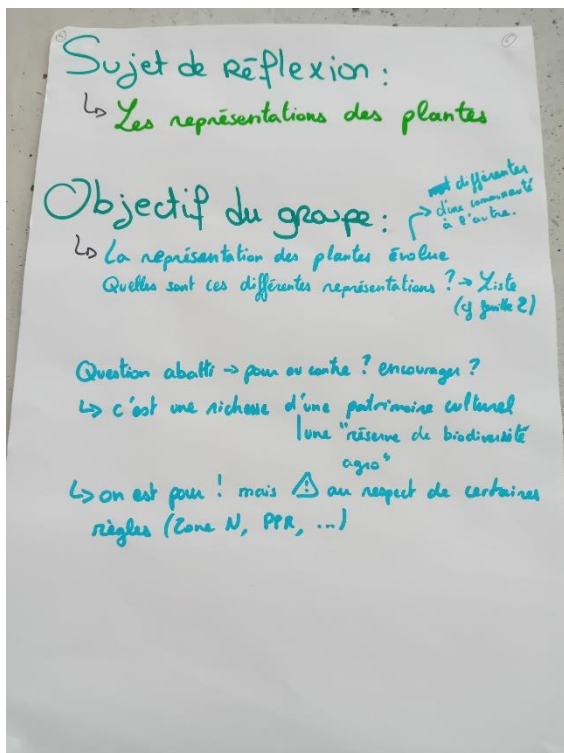 Sujet de Réflexion :
↳ Les représentations des plantes
Objectif du groupe :
→ différentes
d'une communauté
à l'autre.
↳ La représentation des plantes évolue
Quelles sont ces différentes représentations ? → Liste
(cf feuille 2)
Question abatti → pour ou contre ? encourager ?
↳ c'est une richesse d'une patrimoine culturel
| une "réserve de biodiversité
agro"
↳ on est pour ! mais ⚠ au respect de certaines
règles (Zone N, PPR, ...)